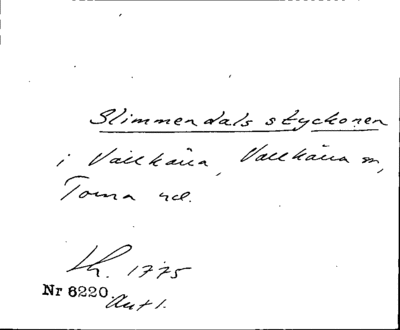 Slimmendals styckonen
i Vallkärra, Vallkärra sn,
Torna hd.
Lh. 1775
Nr 6220. Avt 1.